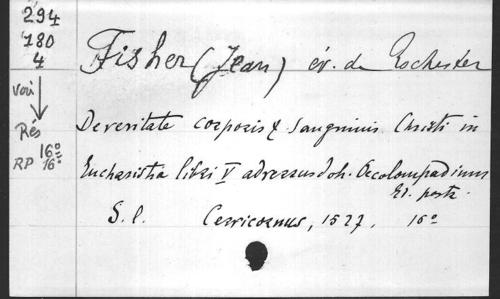 294
780
4
voir
Rés
16°
RP 16°
Fisher (Jean) év. de Rochester
De veritate corporis & sanguinis Christi in
Eucharistia libri V adversus Joh. Oecolompadium
Ed. posta.
S. l. Cervicornus, 1527, 16°